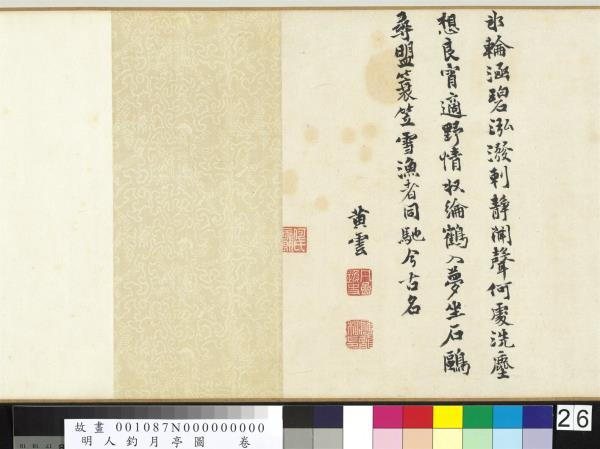 氷輪涵碧泓潑刺靜聞聲何處洗塵
想良宵適野情收綸鶴入夢坐石鷗
尋盟蓑笠雪漁者同馳今古名
黄雲
故畫 001087N000000000
明人釣月亭圖 卷
26